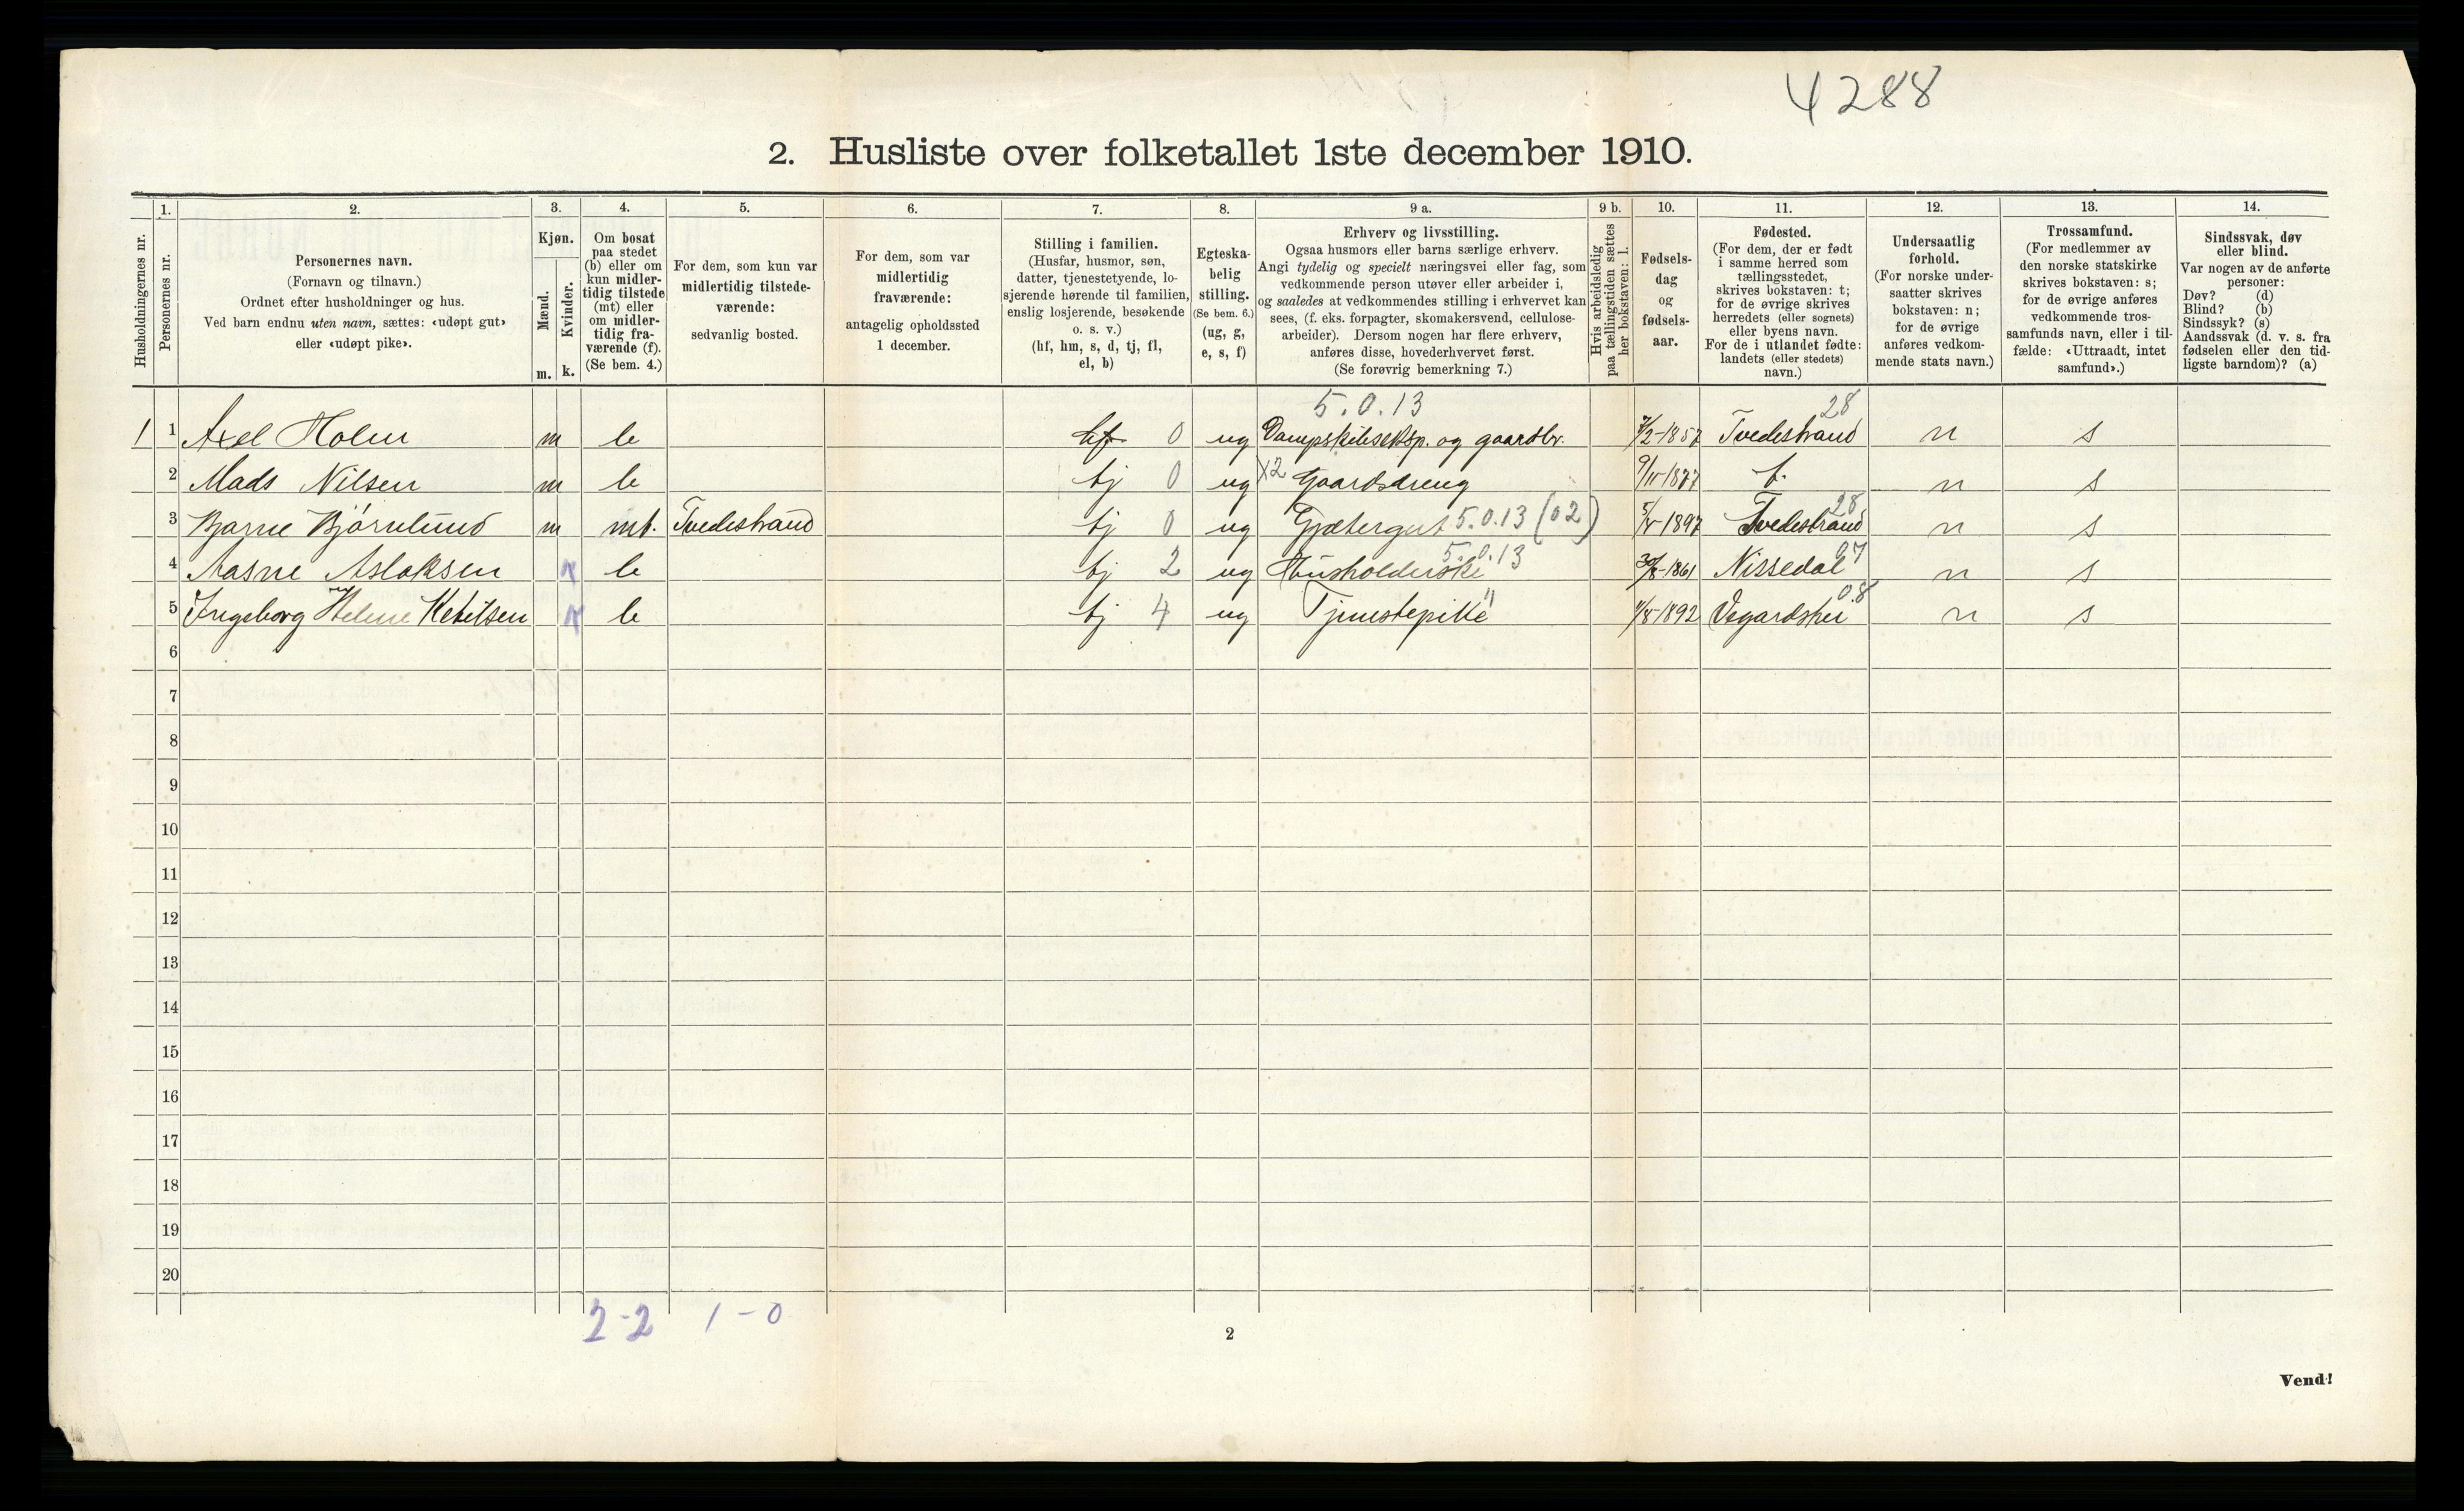 4288
2. Husliste over folketallet 1ste december 1910.
Husholdningernes nr.
1.
Personernes nr.
2.
Personernes navn.
(Fornavn og tilnavn.)
Ordnet efter husholdninger og hus.
Ved barn endnu uten navn, sættes: «udøpt gut»
eller «udøpt pike».
3.
Kjøn.
Mænd.
Kvinder.
m. k.
4.
Om bosat
paa stedet
(b) eller om
kun midler-
tidig tilstede
(mt) eller
om midler-
tidig fra-
værende (f).
(Se bem. 4.)
5.
For dem, som kun var
midlertidig tilstede-
værende:
sedvanlig bosted.
6.
For dem, som var
midlertidig
fraværende:
antagelig opholdssted
1 december.
7.
Stilling i familien.
(Husfar, husmor, søn,
datter, tjenestetyende, lo-
sjerende hørende til familien,
enslig losjerende, besøkende
o. s. v.)
(hf, hm, s, d, tj, fl,
el, b)
8.
Egteska-
belig
stilling.
(Se bem. 6.)
(ug, g,
e, s, f)
9 a.
Erhverv og livsstilling.
Ogsaa husmors eller barns særlige erhverv.
Angi tydelig og specielt næringsvei eller fag, som
vedkommende person utøver eller arbeider i,
og saaledes at vedkommendes stilling i erhvervet kan
sees, (f. eks. forpagter, skomakersvend, cellulose-
arbeider). Dersom nogen har flere erhverv,
anføres disse, hovederhvervet først.
(Se forøvrig bemerkning 7.)
9 b.
Hvis arbeidsledig
paa tællingstiden sættes
her bokstaven: l.
10.
Fødsels-
dag
og
fødsels-
aar.
11.
Fødested.
(For dem, der er født
i samme herred som
tællingsstedet,
skrives bokstaven: t;
for de øvrige skrives
herredets (eller sognets)
eller byens navn.
For de i utlandet fødte:
landets (eller stedets)
navn.)
12.
Undersaatlig
forhold.
(For norske under-
saatter skrives
bokstaven: n;
for de øvrige
anføres vedkom-
mende stats navn.)
13.
Trossamfund.
(For medlemmer av
den norske statskirke
skrives bokstaven: s;
for de øvrige anføres
vedkommende tros-
samfunds navn, eller i til-
fælde: «Uttraadt, intet
samfund».)
14.
Sindssvak, døv
eller blind.
Var nogen av de anførte
personer:
Døv? (d)
Blind? (b)
Sindssyk? (s)
Aandssvak (d. v. s. fra
fødselen eller den tid-
ligste barndom)? (a)
5.0.13 28
1 1 Axel Holm m b hf 0 ug Dampskibseksp. og gaardbr. 7/2-1857 Tvedestrand n s
2 Mads Nilsen m b tj 0 ug X2 Gaardsdreng 9/11-1877 t. n s
3 Bjarne Bjørnlund m mt. Tvedestrand tj 0 ug Gjætergut 5.0.13 (02) 5/5-1897 Tvedestrand 28 n s
4 Aasne Aslaksen k b tj 2 ug Husholderske 5.0.13 30/8-1861 Nissedal 07 n s
5 Ingeborg Helene Ketilsen k b tj 4 ug Tjenestepike " 1/8 1892 Vegardshei 08 n s
6
7
8
9
10
11
12
13
14
15
16
17
18
19
20
2-2 1-0
2
Vend!